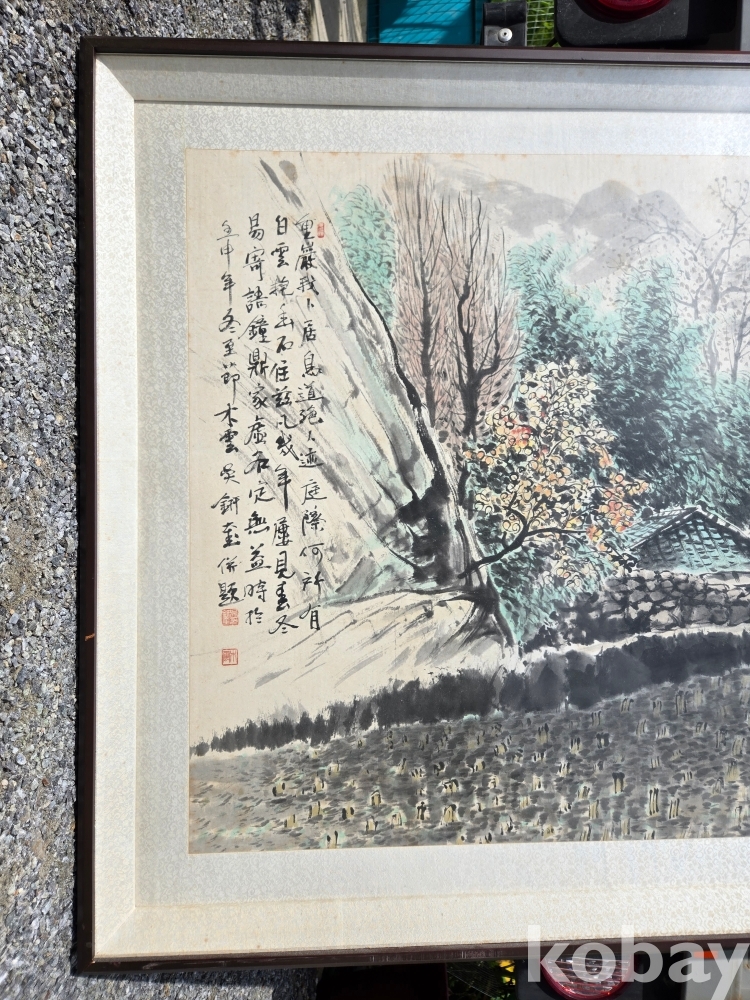 重巖我卜居鳥道絶人迹庭際何所有
白雲抱幽石住兹凡幾年屢見春冬
易寄語鐘鼎家虛名定無益時於
壬申年冬至節木雲吳奎倂題
kobay